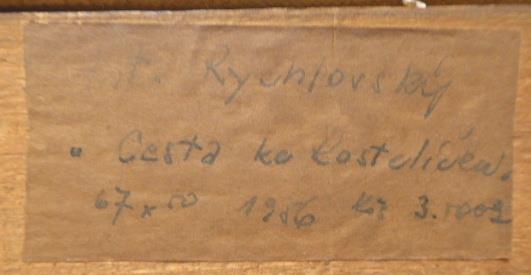 t. Rychlovský
"Cesta ke kostelíčku"
67x50 1956 Kčs